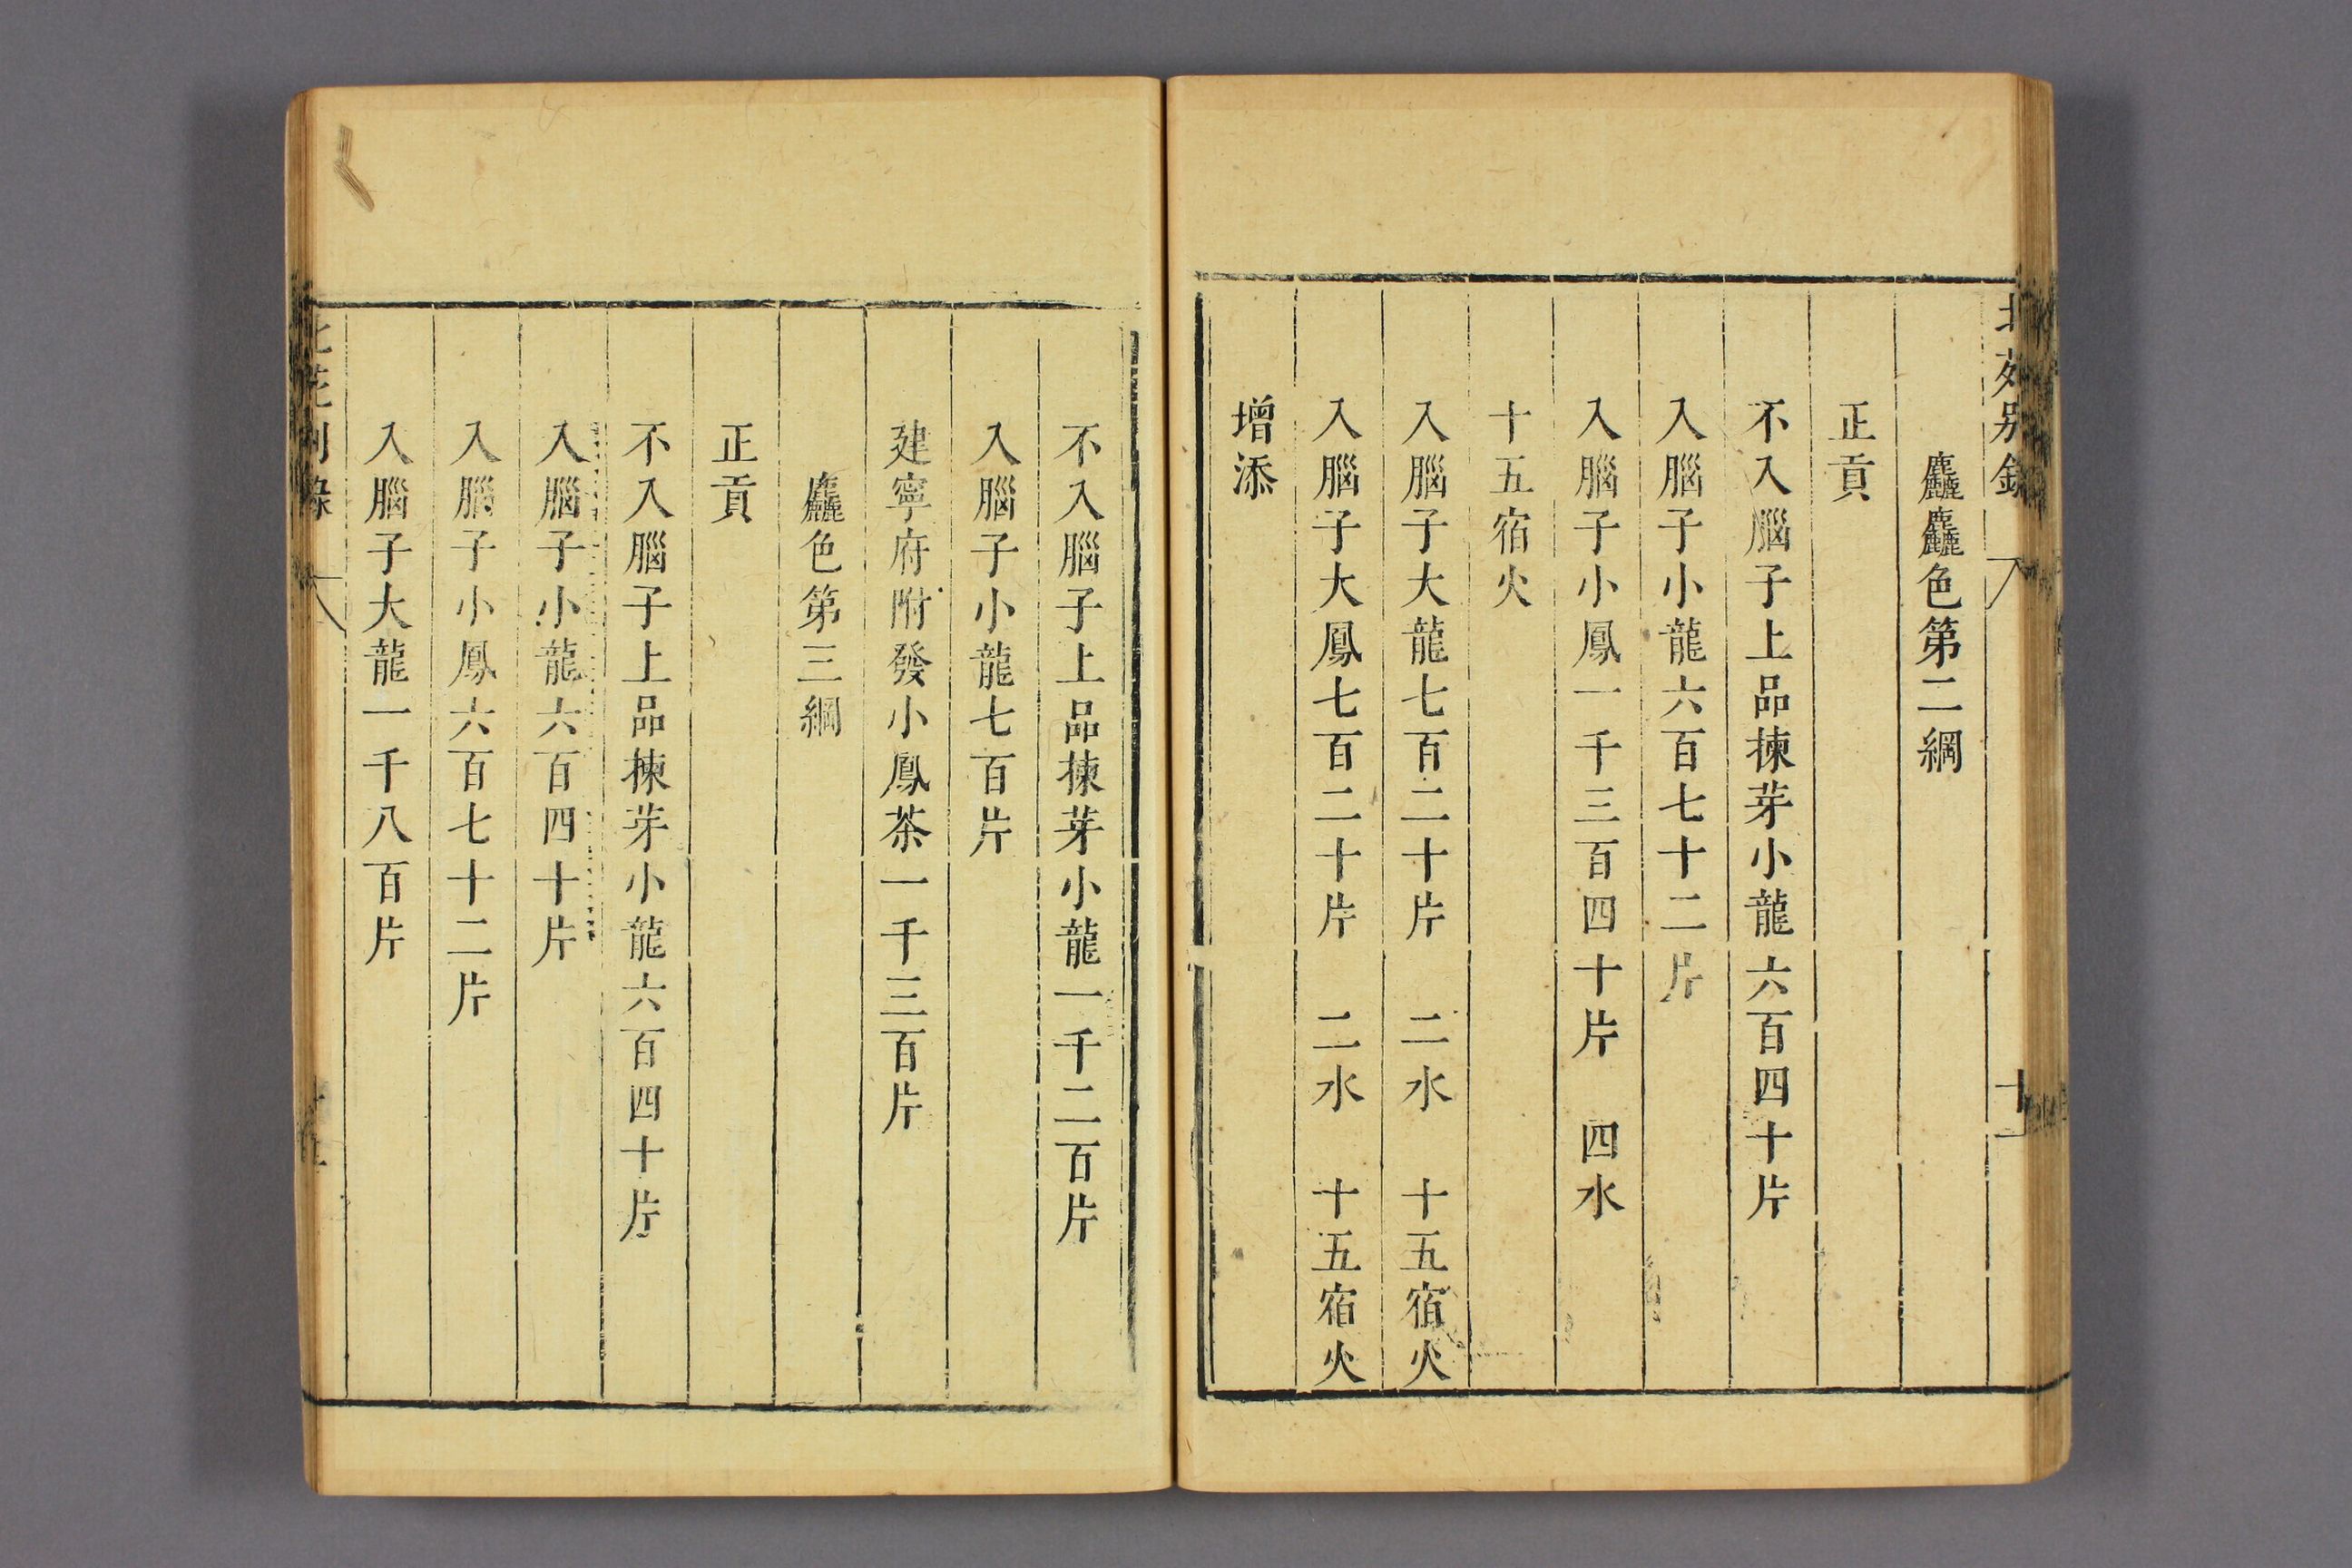 北苑別錄 十一
麤麤色第二綱
正貢
不入腦子上品揀芽小龍六百四十片
入腦子小龍六百七十二片
入腦子小鳳一千三百四十片 四水
十五宿火
入腦子大龍七百二十片 二水 十五宿火
入腦子大鳳七百二十片 二水 十五宿火
增添
不入腦子上品揀芽小龍一千二百片
入腦子小龍七百片
建寧府附發小鳳茶一千三百片
麤色第三綱
正貢
不入腦子上品揀芽小龍六百四十片
入腦子小龍六百四十片
入腦子小鳳六百七十二片
入腦子大龍一千八百片
北苑別錄